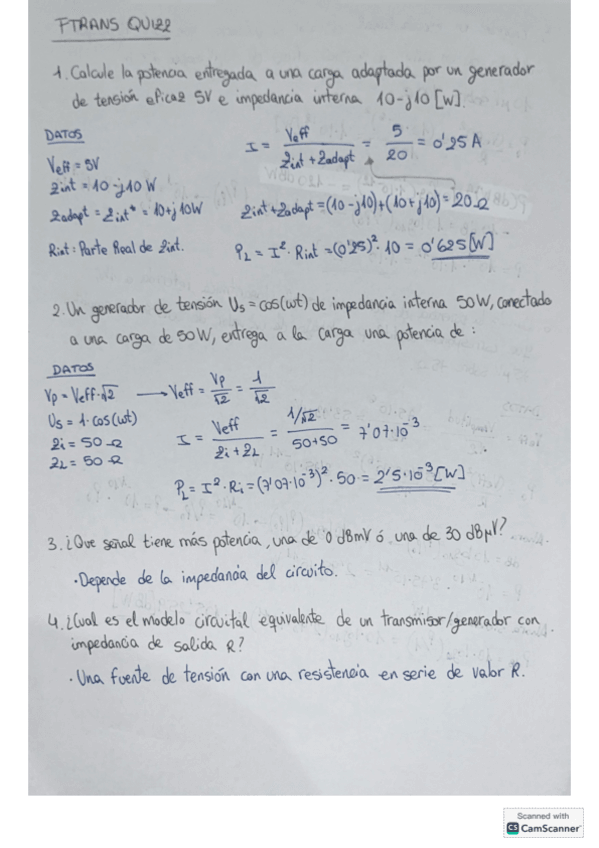 FTRANS QUIZZ
1. Calcule la potencia entregada a una carga adaptada por un generador
de tensión eficaz 5V e impedancia interna 10-j10 [W].
DATOS
Veff = 5V
Zint = 10-j10 W
Zadapt = Zint* = 10+j10W
Rint: Parte Real de Zint.
I = Veff / (Zint + Zadapt) = 5/20 = 0'25 A
Zint+Zadapt=(10-j10)+(10+j10)=20Ω
PL = I²·Rint=(0'25)²·10 = 0'625[W]
2. Un generador de tensión Us = cos(ωt) de impedancia interna 50W, conectado
a una carga de 50W, entrega a la carga una potencia de :
DATOS
Vp = Veff·√2 → Veff = Vp/√2 = 1/√2
Us = 1·cos(ωt)
Zi = 50 Ω
ZL = 50 Ω
I = Veff / (Zi + ZL) = (1/√2) / (50+50) = 7'07·10⁻³
PL = I²·Ri = (7'07·10⁻³)²·50 = 2'5·10⁻³[W]
3. ¿Que señal tiene más potencia, una de 0 dBmV ó una de 30 dBμV?
·Depende de la impedancia del circuito.
4. ¿Cual es el modelo circuital equivalente de un transmisor/generador con
impedancia de salida R?
·Una fuente de tensión con una resistencia en serie de valor R.
Scanned with
CS CamScanner